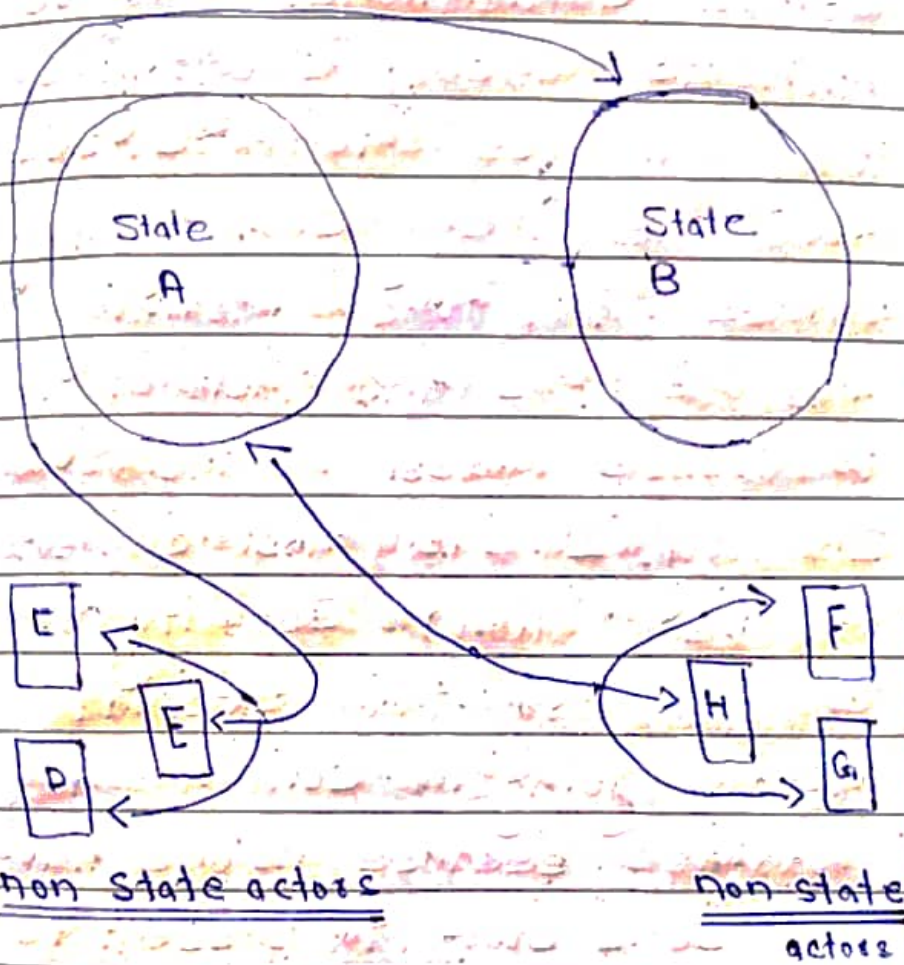 State
A
State
B
C
E
D
F
H
G
non State actors
non-state
actors